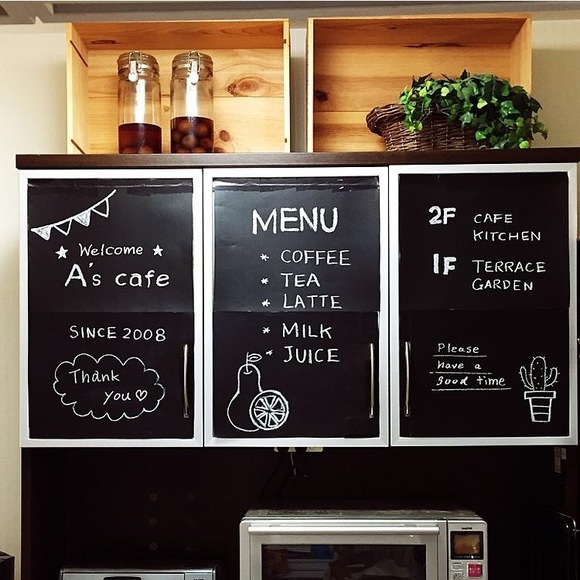 Welcome
A's cafe
SINCE 2008
Thank
you
MENU
* COFFEE
* TEA
* LATTE
* MILK
* JUICE
2F CAFE
KITCHEN
1F TERRACE
GARDEN
Please
have a
good time